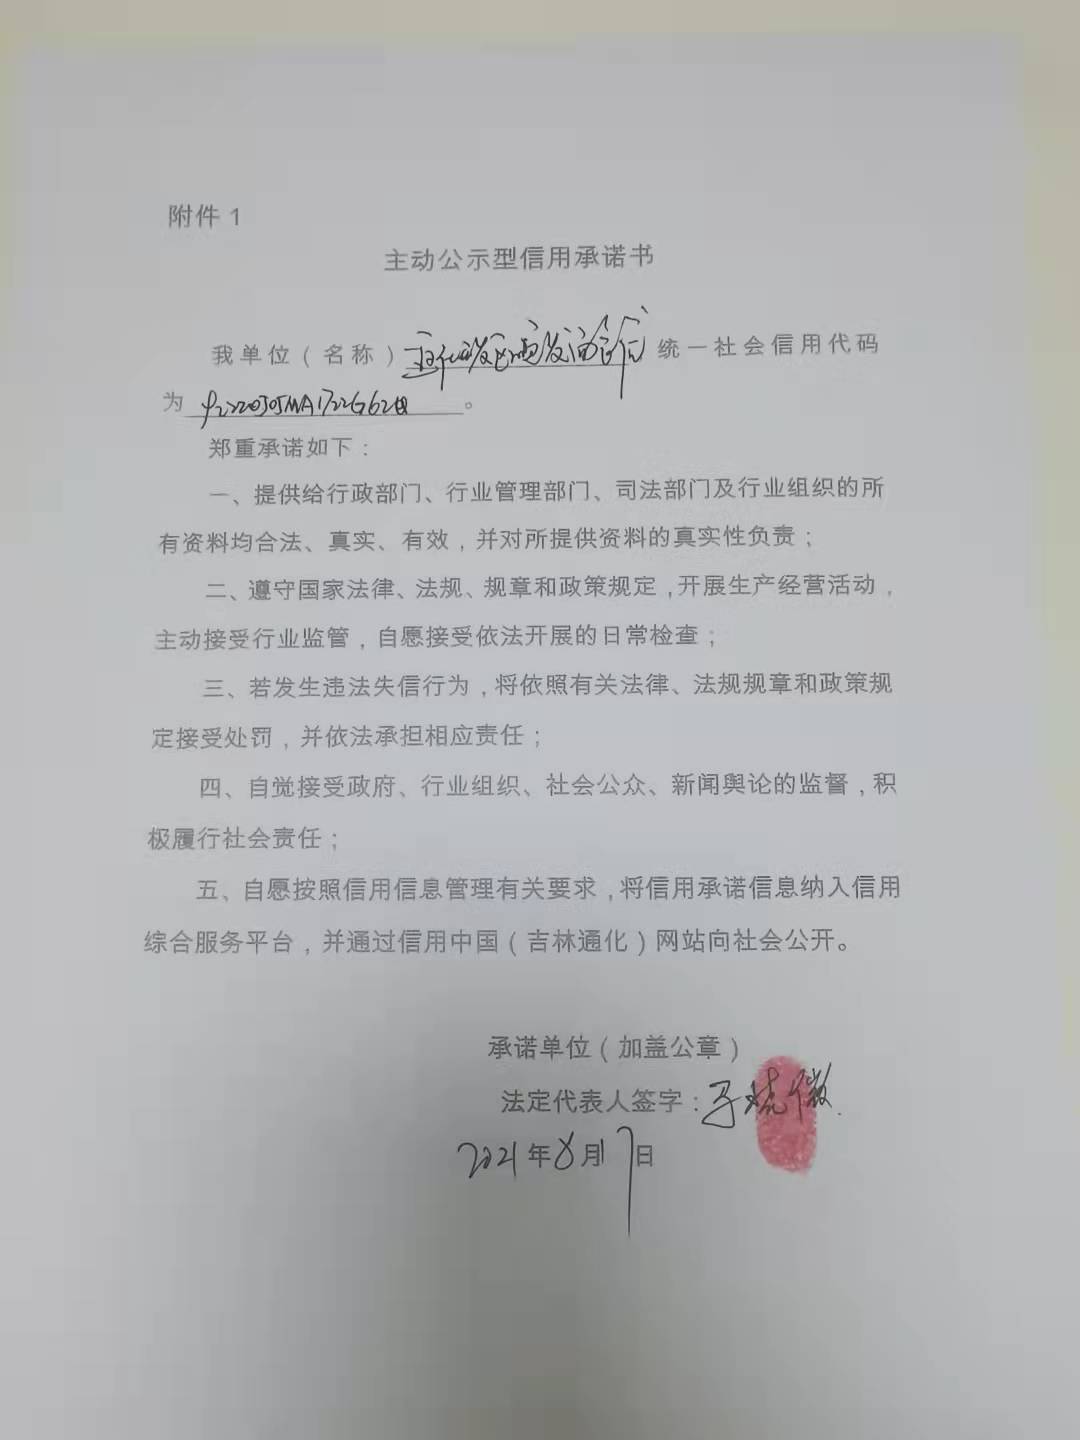 附件 1
主动公示型信用承诺书
我单位（名称）统一社会信用代码
为。
郑重承诺如下：
一、提供给行政部门、行业管理部门、司法部门及行业组织的所
有资料均合法、真实、有效，并对所提供资料的真实性负责；
二、遵守国家法律、法规、规章和政策规定，开展生产经营活动，
主动接受行业监管，自愿接受依法开展的日常检查；
三、若发生违法失信行为，将依照有关法律、法规规章和政策规
定接受处罚，并依法承担相应责任；
四、自觉接受政府、行业组织、社会公众、新闻舆论的监督，积
极履行社会责任；
五、自愿按照信用信息管理有关要求，将信用承诺信息纳入信用
综合服务平台，并通过信用中国（吉林通化）网站向社会公开。
承诺单位（加盖公章）
法定代表人签字：
2021年8月7日